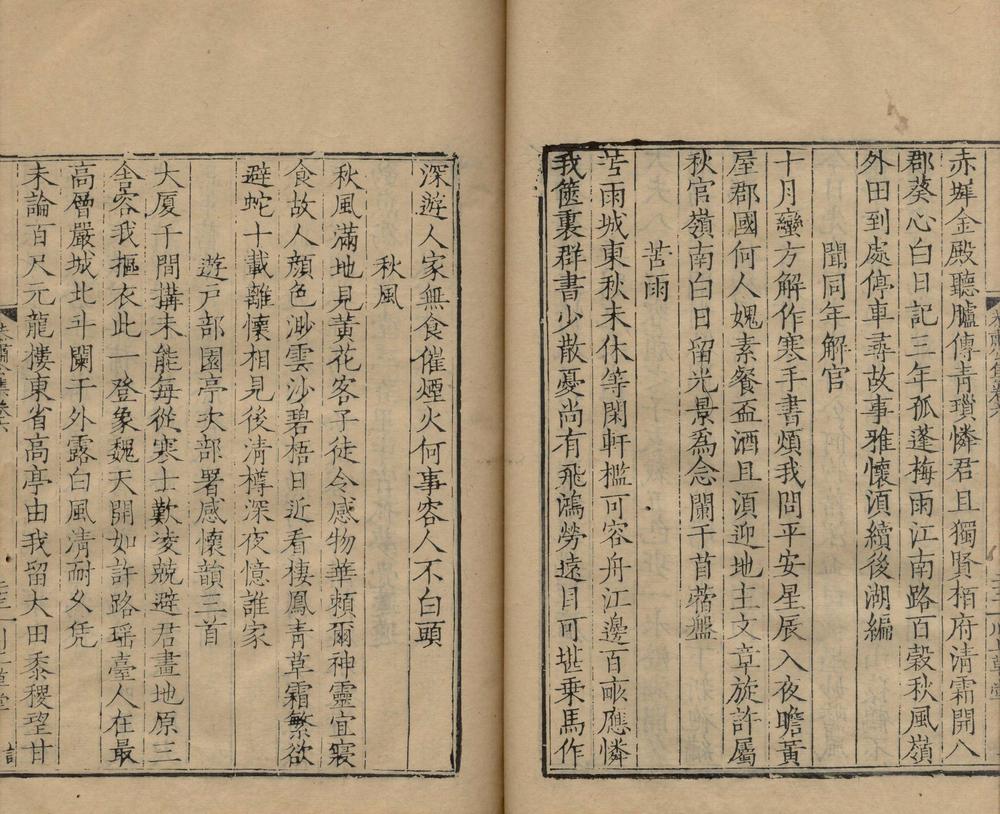 赤墀金殿聽臚傳青瑣憐君且獨賢栢府清霜開八
郡葵心白日記三年孤蓬梅雨江南路百穀秋風嶺
外田到處停車尋故事雅懷湏續後湖編
聞同年解官
十月蠻方解作寒手書煩我問平安星辰入夜瞻黃
屋郡國何人媿素餐盃酒且湏迎地主文章旋許屬
秋官嶺南白日留光景爲念闌干首蓿盤
苦雨
苦雨城東秋未休等閑軒檻可容舟江邊百畝應憐
我篋裏群書少散憂尚有飛鴻勞遠目可堪乗馬作
深遊人家無食催煙火何事客人不白頭
秋風
秋風滿地見黃花客子徒令感物華頼爾神靈宜寢
食故人顔色渺雲沙碧梧日近看棲鳳青草霜繁欲
避蛇十載離懷相見後清樽深夜憶誰家
遊戸部園亭次部署感懷韻三首
大厦千間搆未能每從寒士歎凌兢避君畫地原三
舎容我摳衣此一登象魏天開如許路瑤臺人在最
高層嚴城北斗闌干外露白風淸耐乆凭
未論百尺元龍樓東省高亭由我留大田黍稷望甘